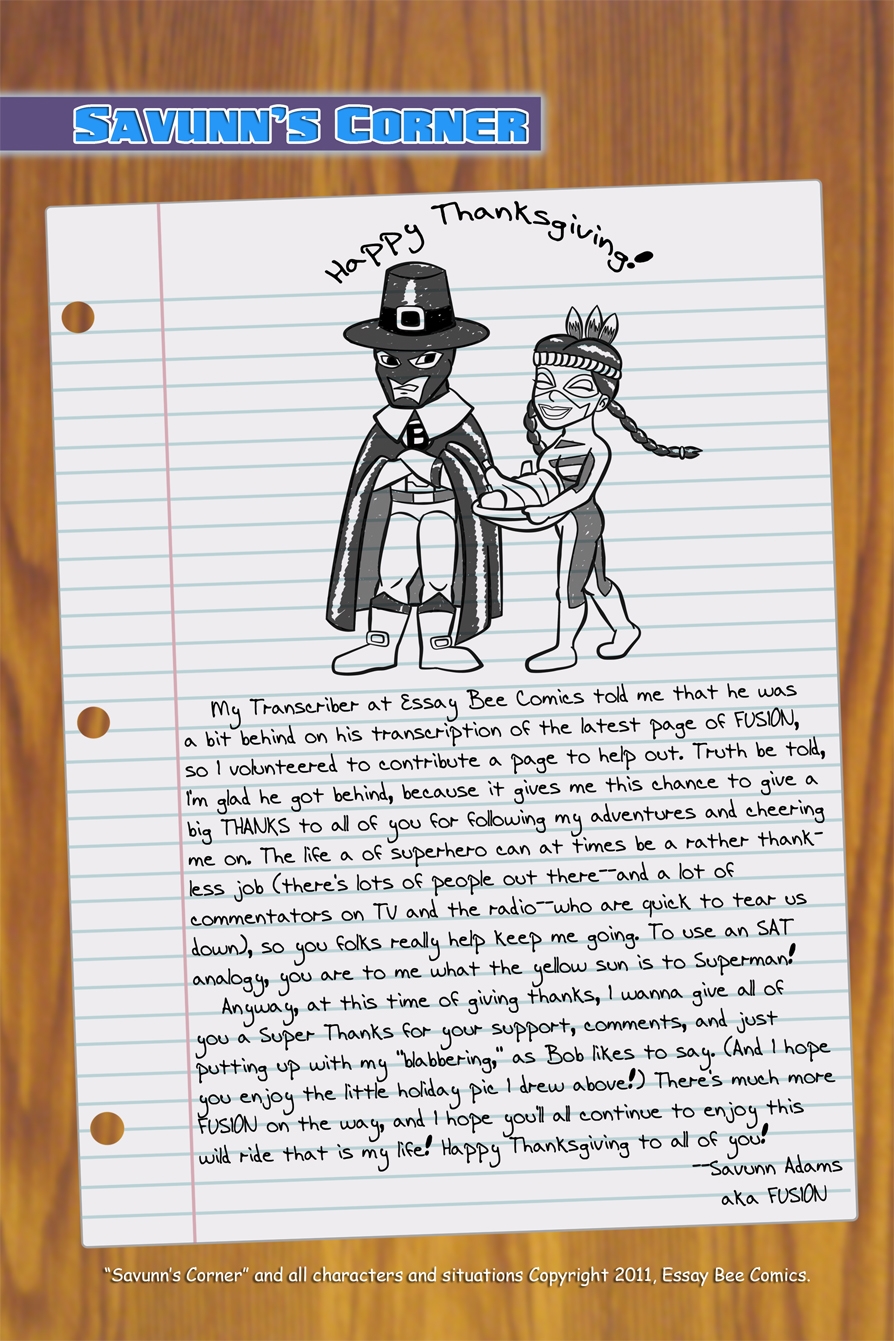 SAVUNN'S CORNER
Happy Thanksgiving!
B
My Transcriber at Essay Bee Comics told me that he was
a bit behind on his transcription of the latest page of FUSION,
so I volunteered to contribute a page to help out. Truth be told,
I'm glad he got behind, because it gives me this chance to give a
big THANKS to all of you for following my adventures and cheering
me on. The life a of superhero can at times be a rather thank-
less job (there's lots of people out there--and a lot of
commentators on TV and the radio--who are quick to tear us
down), so you folks really help keep me going. To use an SAT
analogy, you are to me what the yellow sun is to Superman!
Anyway, at this time of giving thanks, I wanna give all of
you a Super Thanks for your support, comments, and just
putting up with my "blabbering," as Bob likes to say. (And I hope
you enjoy the little holiday pic I drew above!) There's much more
FUSION on the way, and I hope you'll all continue to enjoy this
wild ride that is my life! Happy Thanksgiving to all of you!
--Savunn Adams
aka FUSION
"Savunn's Corner" and all characters and situations Copyright 2011, Essay Bee Comics.